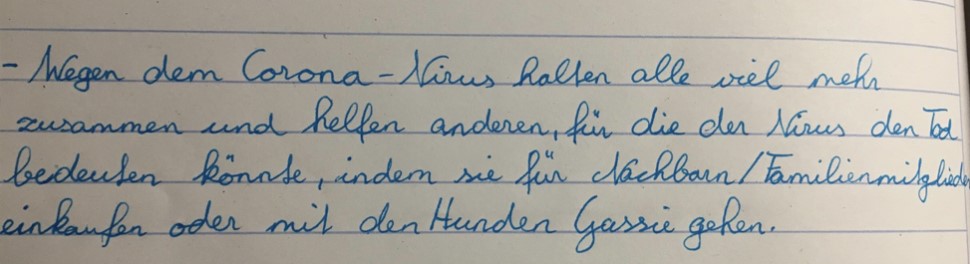 - Wegen dem Corona-Virus halten alle viel mehr
zusammen und helfen anderen, für die der Virus den Tod
bedeuten könnte, indem sie für Nachbarn/Familienmitglieder
einkaufen oder mit den Hunden Gassie gehen.